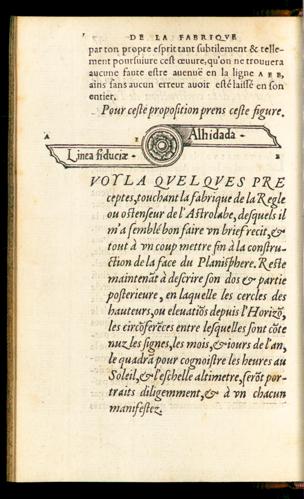 DE LA FABRIQVE
par ton propre esprit tant subtilement & telle-
ment poursuiure ceſt œuure, qu'on ne trouuera
aucune faute estre auenuë en la ligne A E B,
ains sans aucun erreur auoir esté laissé en son
entier.
Pour ceſte proposition prens ceſte figure.
A E Alhidada
Linea fiduciæ B
VOYLA QVELQVES PRE
ceptes, touchant la fabrique de la Regle
ou oſtenseur de l'Aſtrolabe, desquels il
m'a semblé bon faire vn brief recit, &
tout à vn coup mettre fin à la conſtru-
ction de la face du Planisphere. Reſte
maintenãt à descrire son dos & partie
posterieure, en laquelle les cercles des
hauteurs, ou eleuatiõs depuis l'Horizõ,
les circõferẽces entre lesquelles sont cõte
nuz les signes, les mois, & iours de l'an,
le quadra pour cognoiſtre les heures au
Soleil, & l'eschelle altimetre, serõt por-
traits diligemment, & à vn chacun
manifestez.